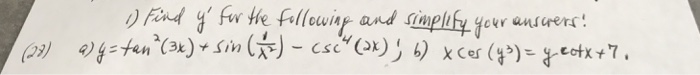 1) Find y' for the following and simplify your answers!
(28) a) y = tan²(3x) + sin(1/x²) - csc⁴(2x); b) x cos(y³) = y-cotx+7.